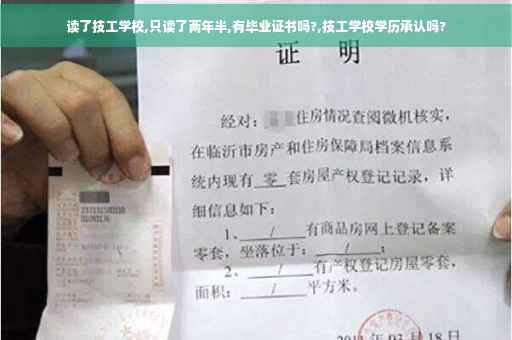 读了技工学校,只读了两年半,有毕业证书吗?,技工学校学历承认吗?
证 明
经对：住房情况查阅微机核实，
在临沂市房产和住房保障局档案信息系
统内现有 零 套房屋产权登记记录，详
细信息如下：
1、 / 有商品房网上登记备案
零套，坐落位于： / ；
2、 / 有产权登记房屋零套，
面积： / 平方米。
03月18日